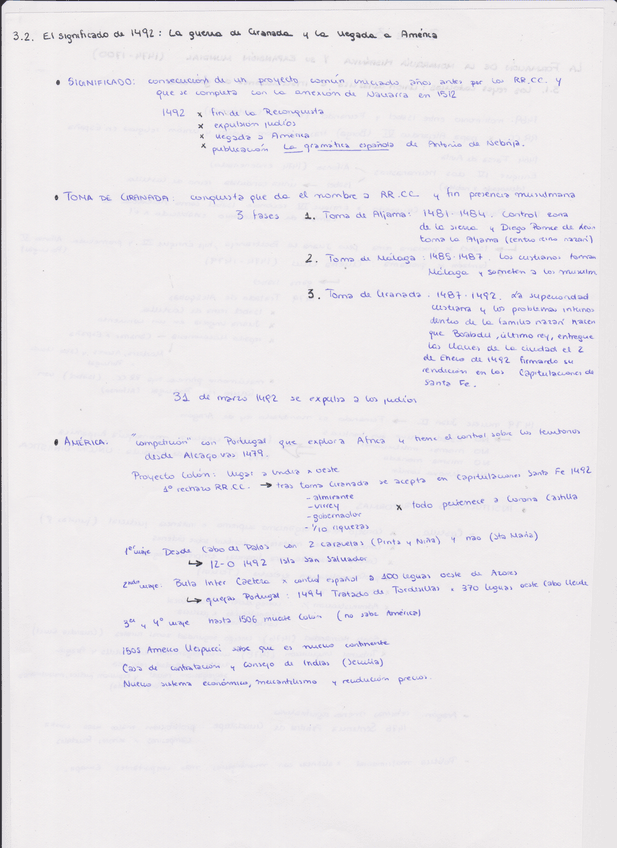 3.2. El significado de 1492: La guerra de Granada y la llegada a América
• SIGNIFICADO: consecución de un proyecto común iniciado años antes por los RR.CC. y
que se completa con la anexión de Navarra en 1512
1492 x fin de la Reconquista
x expulsión judíos
x llegada a América
x publicación La gramática española de Antonio de Nebrija.
• TOMA DE GRANADA: conquista que da el nombre a RR.CC y fin presencia musulmana
3 fases 1. Toma de Aljama: 1481-1484. Control zona
de la sierra y Diego Ponce de León
toma la Aljama (centro reino nazarí)
2. Toma de Málaga: 1485-1487. Los cristianos toman
Málaga y someten a los musulm
3. Toma de Granada: 1487-1492. La superioridad
cristiana y los problemas internos
dentro de la familia nazarí hacen
que Boabdil, último rey, entregue
las llaves de la ciudad el 2
de Enero de 1492 firmando su
rendición en las Capitulaciones de
Santa Fe.
31 de marzo 1492 se expulsa a los judíos
• AMÉRICA: "competición" con Portugal que explora África y tiene el control sobre los territorios
desde Alcaçovas 1479.
Proyecto Colón: llegar a India x oeste
1º rechazo RR.CC. → tras toma Granada se acepta en Capitulaciones Santa Fe 1492
- almirante
- virrey x todo pertenece a Corona Castilla
- gobernador
- 1/10 riquezas
1er viaje Desde Cabo de Palos con 2 carabelas (Pinta y Niña) y nao (Sta María)
→ 12-O 1492 Isla San Salvador
2ndo viaje Bula Inter Caetera x control español a 100 leguas oeste de Azores
→ quejas Portugal: 1494 Tratado de Tordesillas x 370 leguas oeste Cabo Verde
3er y 4º viaje hasta 1506 muere Colón (no sabe América)
1505 Américo Vespucci sabe que es nuevo continente
Casa de contratación y Consejo de Indias (Sevilla)
Nuevo sistema económico, mercantilismo y revolución precios.